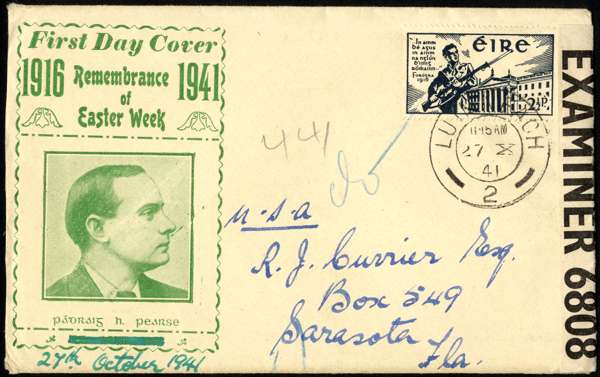 First Day Cover
1916 Remembrance 1941
of
Easter Week
pádraig h. pearse
27th October 1941
"In ainm
Dé agus
in ainm
na nglún
Forógra
1916
ÉIRE
2½P.
11-15AM
27 X
41
2
441
U-S-A
R. J. Currier Esq.
Box 549
Sarasota
Fla.
EXAMINER 6808